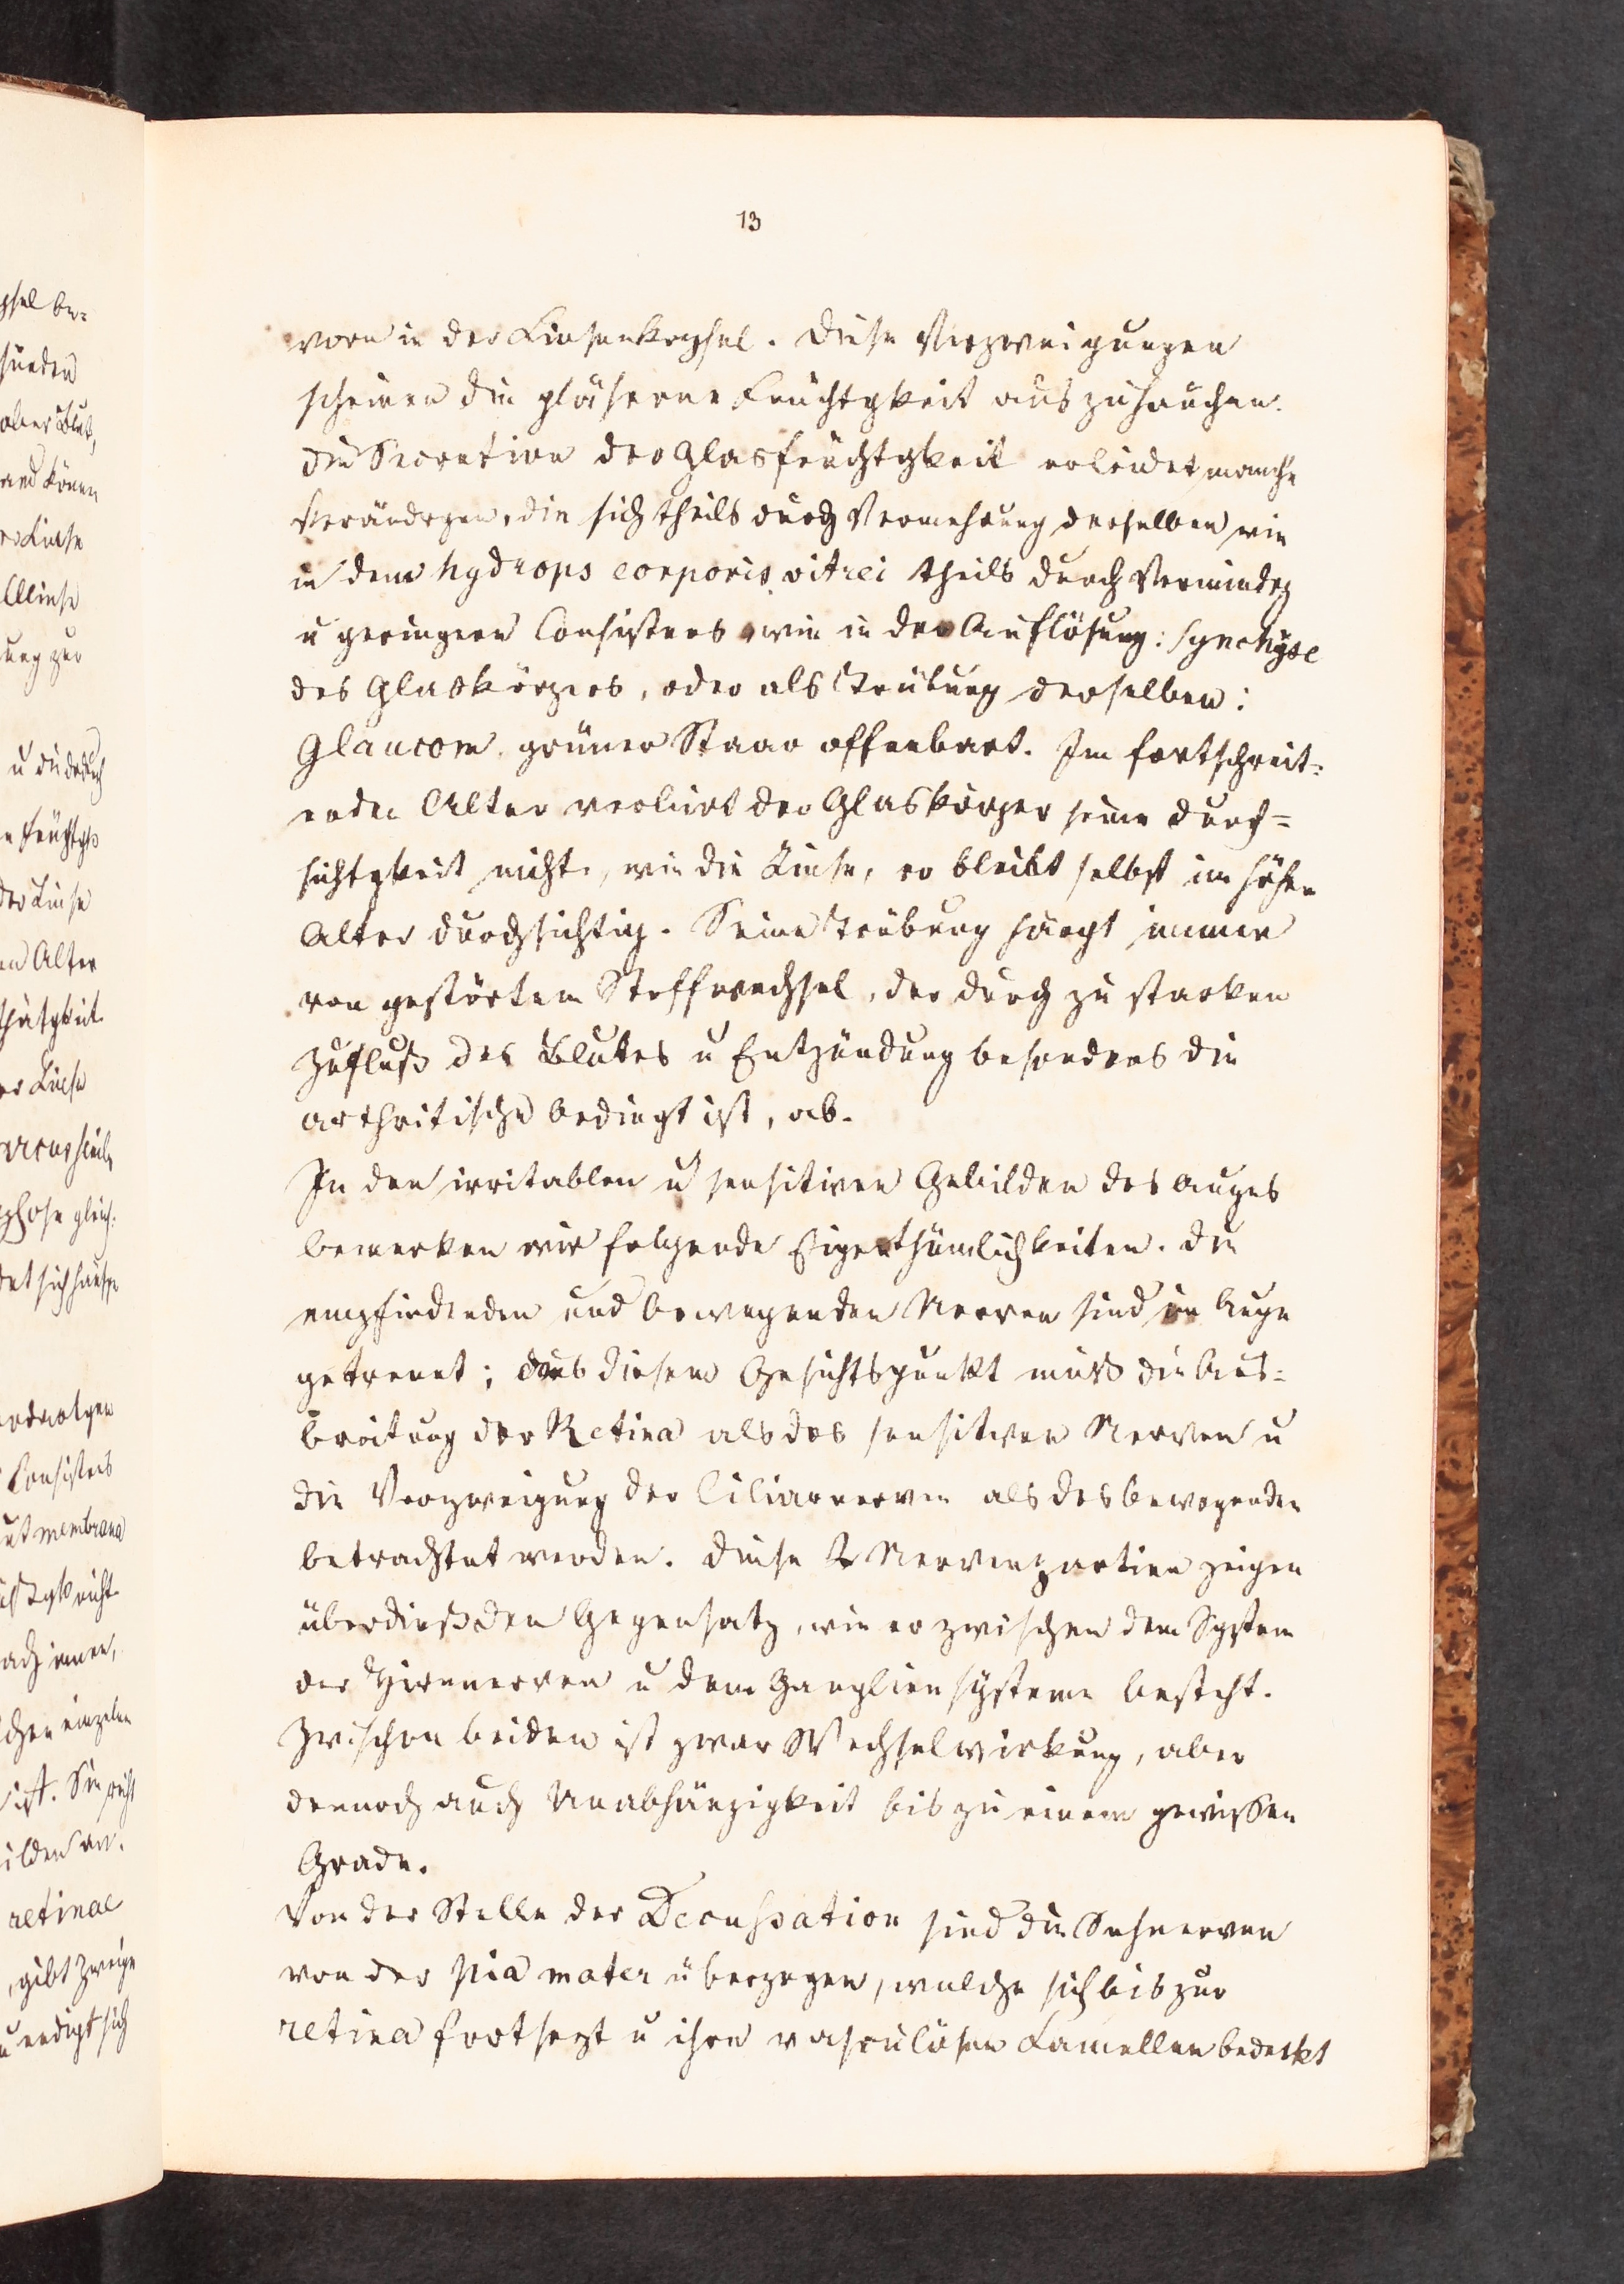 13
vorn in der Linsenkapsel. Diese Verzweigungen
scheinen die gläserne Feuchtgkeit auszuhauchen.
Die Secretion der Glasfeuchtgkeit erleidet manche
Verändrgen, die sich theils durch Vermehrung derselben wie
in dem hydrops corporis vitrei theils durch Vermindrg
u geringere Consistens wie in der Auflösung: Synchyse
des Glaskörpers, oder als Trübung derselben:
Glaucom grüner Staar offenbart. Im fortschreit=
enden Alter verliert der Glaskörper seine Durch=
sichtgkeit nicht, wie die Linse, er bleibt selbst im hohen
Alter durchsichtig. Seine Trübung hängt immer
von gestörtem Stoffwechsel, der durch zu starken
Zufluß des Blutes u Entzündung besonders die
arthritische bedingt ist, ab.
In den irritablen u sensitiven Gebilden des Auges
bemerken wir folgende Eigenthümlichkeiten. Die
empfindenden und bewegenden Nerven sind im Auge
getrennt; aus diesem Gesichtspunkt muß die Aus=
breitung der Retina als des sensitiven Nerven u
die Verzweigung der Ciliarnerven als des bewegenden
betrachtet werden. Diese 2 Nervenpartien zeigen
überdieß den Gegensatz, wie er zwischen dem System
der Hirnnerven u dem Gangliensysteme besteht.
Zwischen beiden ist zwar Wechselwirkung, aber
dennoch auch Unabhängigkeit bis zu einem gewissen
Grade.
Von der Stelle der Decussation sind die Sehnerven
von der pia mater überzogen, welche sich bis zur
retina fortsezt u ihre vasculösen Lamellen bedeckt